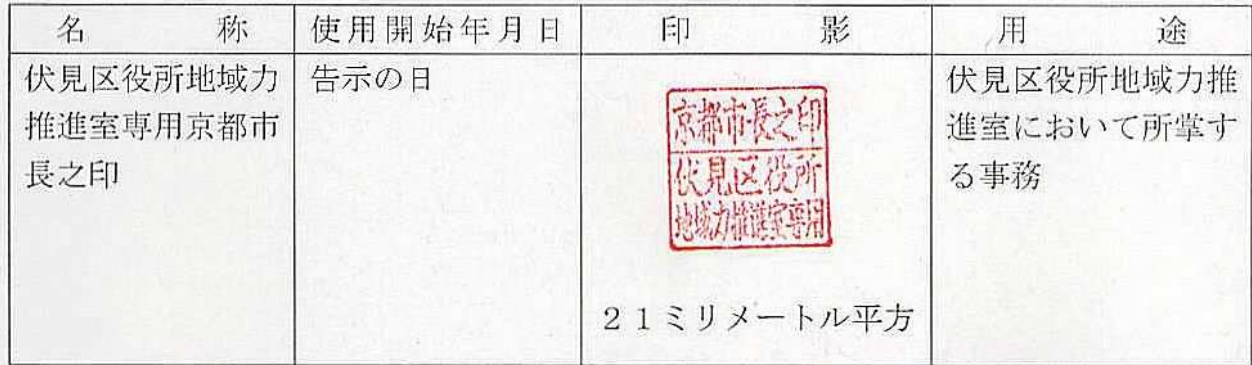 名称
使用開始年月日
印影
用途
伏見区役所地域力
推進室専用京都市
長之印
告示の日
京都市長之印
伏見区役所
地域力推進室専用
21ミリメートル平方
伏見区役所地域力推
進室において所掌す
る事務